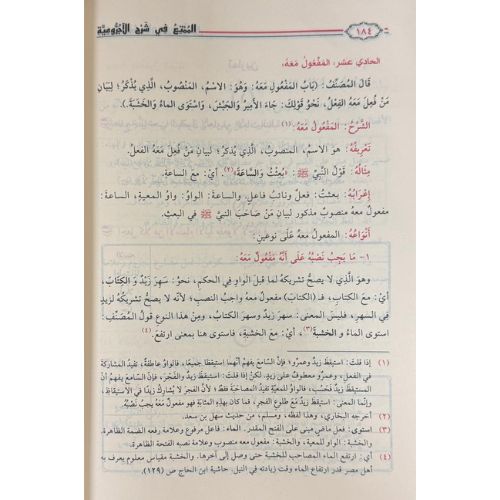 ١٨٤
المُمْتِعُ فِي شَرْحِ الآجُرُّومِيَّةِ
الحادي عشر: المَفْعُولُ مَعَهُ:
قَالَ المُصَنِّفُ: (بَابُ المَفْعُولِ مَعَهُ: وَهُوَ: الاسْمُ، المَنْصُوبُ، الَّذِي يُذْكَرُ؛ لِبَيَانِ
مَنْ فُعِلَ مَعَهُ الفِعْلُ، نَحْوُ قَوْلِكَ: جَاءَ الأَمِيرُ وَالجَيْشَ، وَاسْتَوَى المَاءُ وَالخَشَبَةَ).
الشَّرْحُ: المَفْعُولُ مَعَهُ: (١)
تَعْرِيفُهُ: هو الاسم، المنصوب، الَّذِي يُذكر؛ لبيان من فُعِلَ مَعَهُ الفعلُ.
مِثَالُهُ: قَوْلُ النَّبِيِّ ﷺ: «بُعِثْتُ وَالسَّاعَةَ» (٢). أَيْ: مَعَ السَّاعةِ.
إِعْرَابُهُ: بعثتُ: فعل ونائب فاعل. والساعة: الواو: واو المعية، الساعة:
مفعول معه منصوب مذكور لبيان مَنْ صَاحَبَ النبيَّ ﷺ في البعث.
أَنْوَاعُهُ: المفعول معه عَلَى نوعين:
١- مَا يَجِبُ نَصْبُهُ عَلَى أَنَّهُ مَفْعُولٌ مَعَهُ:
وهو الَّذِي لا يصحُّ تشريكه لما قبل الواو في الحكم، نحو: سَهِرَ زَيْدٌ وَ الكِتَابَ،
أَيْ: مَعَ الكتابِ، فـ (الكتاب) مفعول معه واجب النصب؛ لأنه لا يصح تشريكُه لزيدٍ
في السهر، فليس المعنى: سهرَ زيدٌ وسهرَ الكتابُ، ومِن هذا النوع قول المُصَنِّف:
استوى الماءُ و الخشبةَ (٣)، أي: مع الخشبةِ، فاستوى هنا بمعنى ارتفع. (٤)
(١) إذا قلتَ: استيقظ زيدٌ وعمرٌو؛ فإن السامع يفهم أنهما استيقظا جميعًا، فالواو عاطفة، تفيد المشاركة
في الفعل، وعمرو معطوف على زيد. لكنْ إذا قلتَ: استيقظ زيدٌ والفجرَ، فإنَّ السامع يفهم أنَّ
المستيقظ زيدٌ فحَسْب، فالواو للمعيَّة تفيد المصاحبة فقط؛ لأنَّ الفجر لا يُشارك زيدًا في الاستيقاظ،
وإنَّما المعنى: استيقظ زيدٌ مَعَ طلوعِ الفجر، فما كان بهذِه المثابة فهو مفعولٌ معهُ يجبُ نصْبُه.
(٢) أخرجه البخاري، وهذا لفظه، ومسلم، من حديث سهل بن سعد.
(٣) استوى: فعل ماضٍ مبني على الفتح المقدر. الماء: فاعل مرفوع وعلامة رفعه الضمة الظاهرة.
والخشبة: الواو للمعية، والخشبة: مفعول معه منصوب وعلامة نصبه الفتحة الظاهرة.
(٤) أي: ارتفع الماء المصاحب للخشبة حتى وصل إلى آخرها. والخشبة مقياس معلوم يعرف به
أهل مصر قدر ارتفاع الماء وقت زيادته في النيل. حاشية ابن الحاج ص (١٢٩).